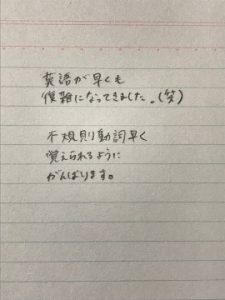 英語が早くも
複雑になってきました。(笑)
不規則動詞早く
覚えられるように
がんばります。